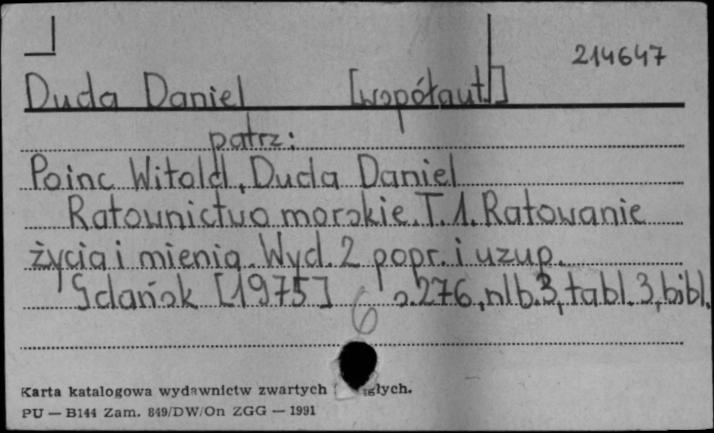 214647
Duda Daniel [współaut.]
patrz:
Poinc Witold, Duda Daniel
Ratownictwo morskie. T. 1. Ratowanie
życia i mienia. Wyd. 2 popr. i uzup.
Gdańsk [1975] s. 276, nlb. 3, tabl. 3, bibl.
6
Karta katalogowa wydawnictw zwartych
PU — B144 Zam. 849/DW/On ZGG — 1991